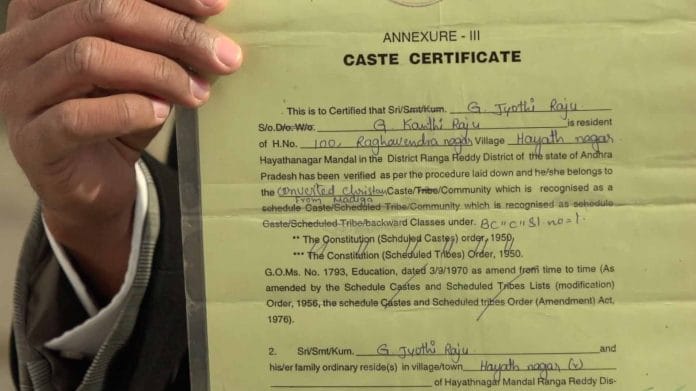 ANNEXURE - III
CASTE CERTIFICATE
This is to Certified that Sri/Smt/Kum. G. Jyothi Raju
S/o.D/o.W/o. G Kanthi Raju is resident
of H.No. 100, Raghavendra nagar Village Hayath nagar
Hayathanagar Mandal in the District Ranga Reddy District of the state of Andhra
Pradesh has been verified as per the procedure laid down and he/she belongs to
the converted christan Caste/Tribe/Community which is recognised as a
From Madiga
schedule Caste/Scheduled Tribe/Community which is recognised as schedule
Caste/Scheduled Tribe/backward Classes under. BC "C" Sl no=1.
** The Constitution (Schduled Castes) order, 1950.
*** The Constitution (Scheduled Tribes) Order, 1950.
G.O.Ms. No. 1793, Education, dated 3/9/1970 as amend from time to time (As
amended by the Schedule Castes and Scheduled Tribes Lists (modification)
Order, 1956, the schedule Castes and Scheduled tribes Order (Amendment) Act,
1976).
2. Sri/Smt/Kum. G Jyothi Raju and
his/er family ordinary reside(s) in village/town Hayath nagar (v)
of Hayathnagar Mandal Ranga Reddy Dis-